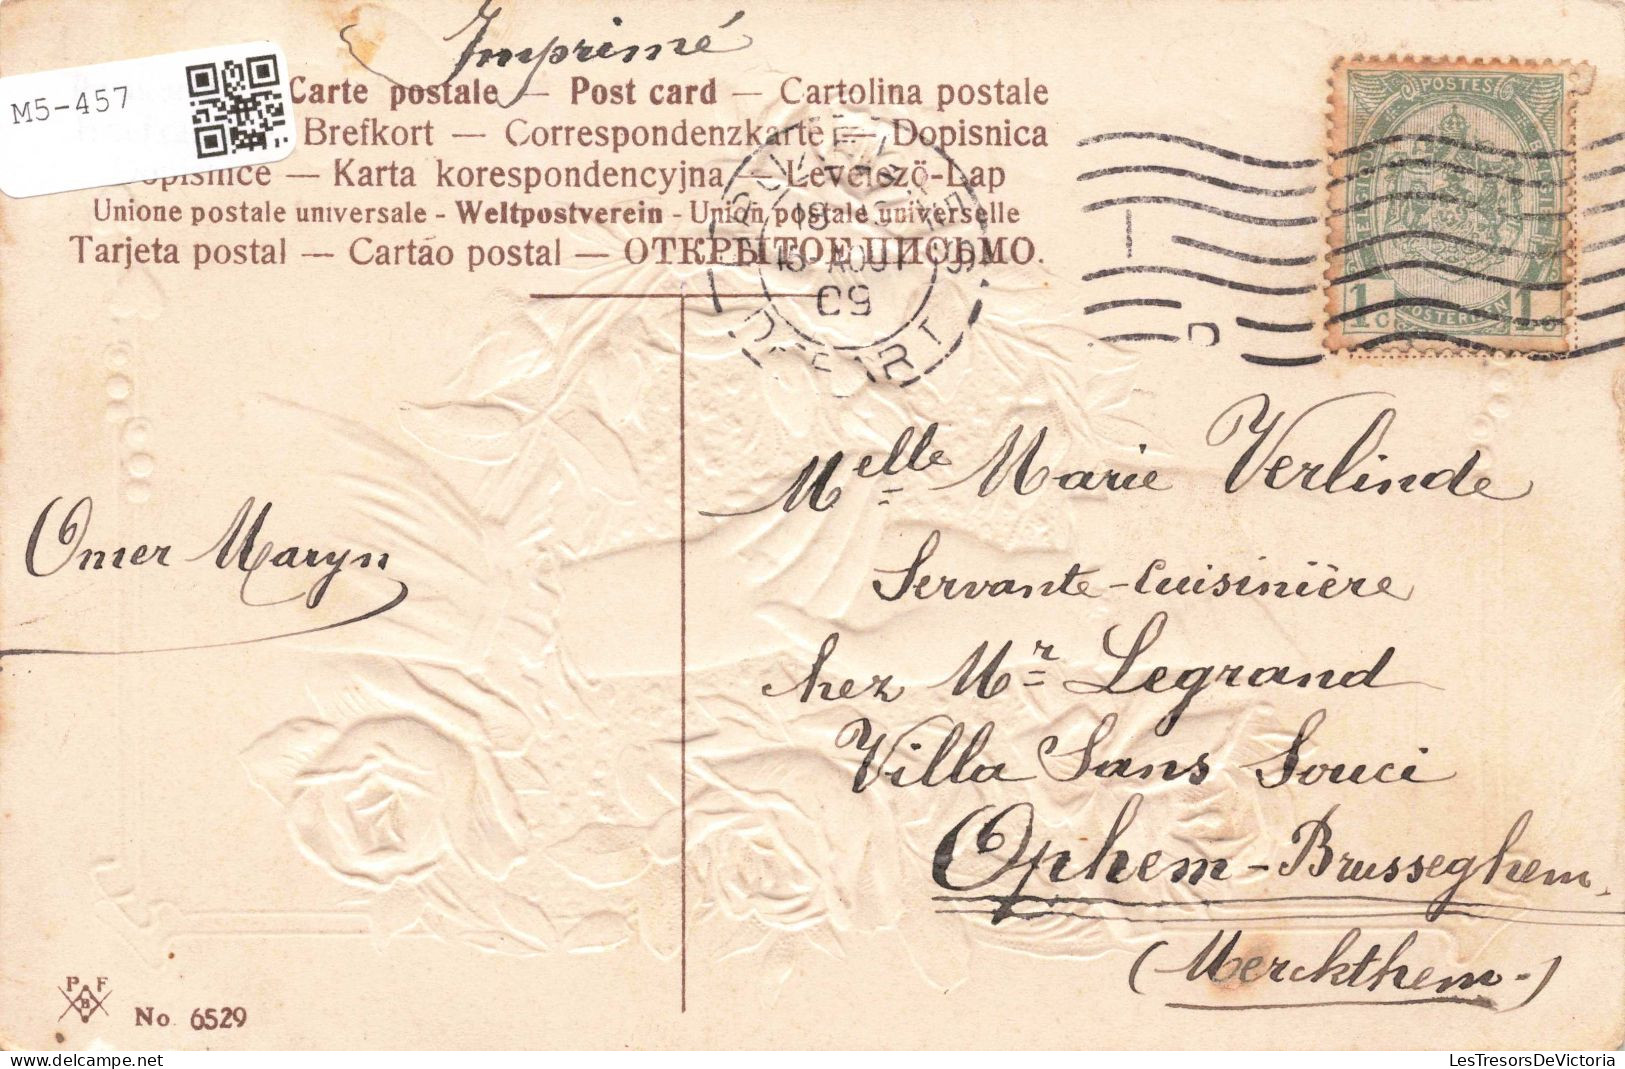 Imprimé
M5-457
Carte postale — Post card — Cartolina postale
Brefkort — Correspondenzkarte — Dopisnica
Dopisnice — Karta korespondencyjna — Levelező-Lap
Unione postale universale - Weltpostverein - Union postale universelle
Tarjeta postal — Cartão postal — ОТКРЫТОЕ ПИСЬМО.
BRUXELLES
18
15 AOUT
09
DÉPART
POSTES
1c 1c
Melle Marie Verlinde
Omer Maryn
Servante-Cuisinière
chez Mr Legrand
Villa Sans Souci
Ophem-Brusseghem
(Merckthem-)
P F
B
No 6529
LesTresorsDeVictoria